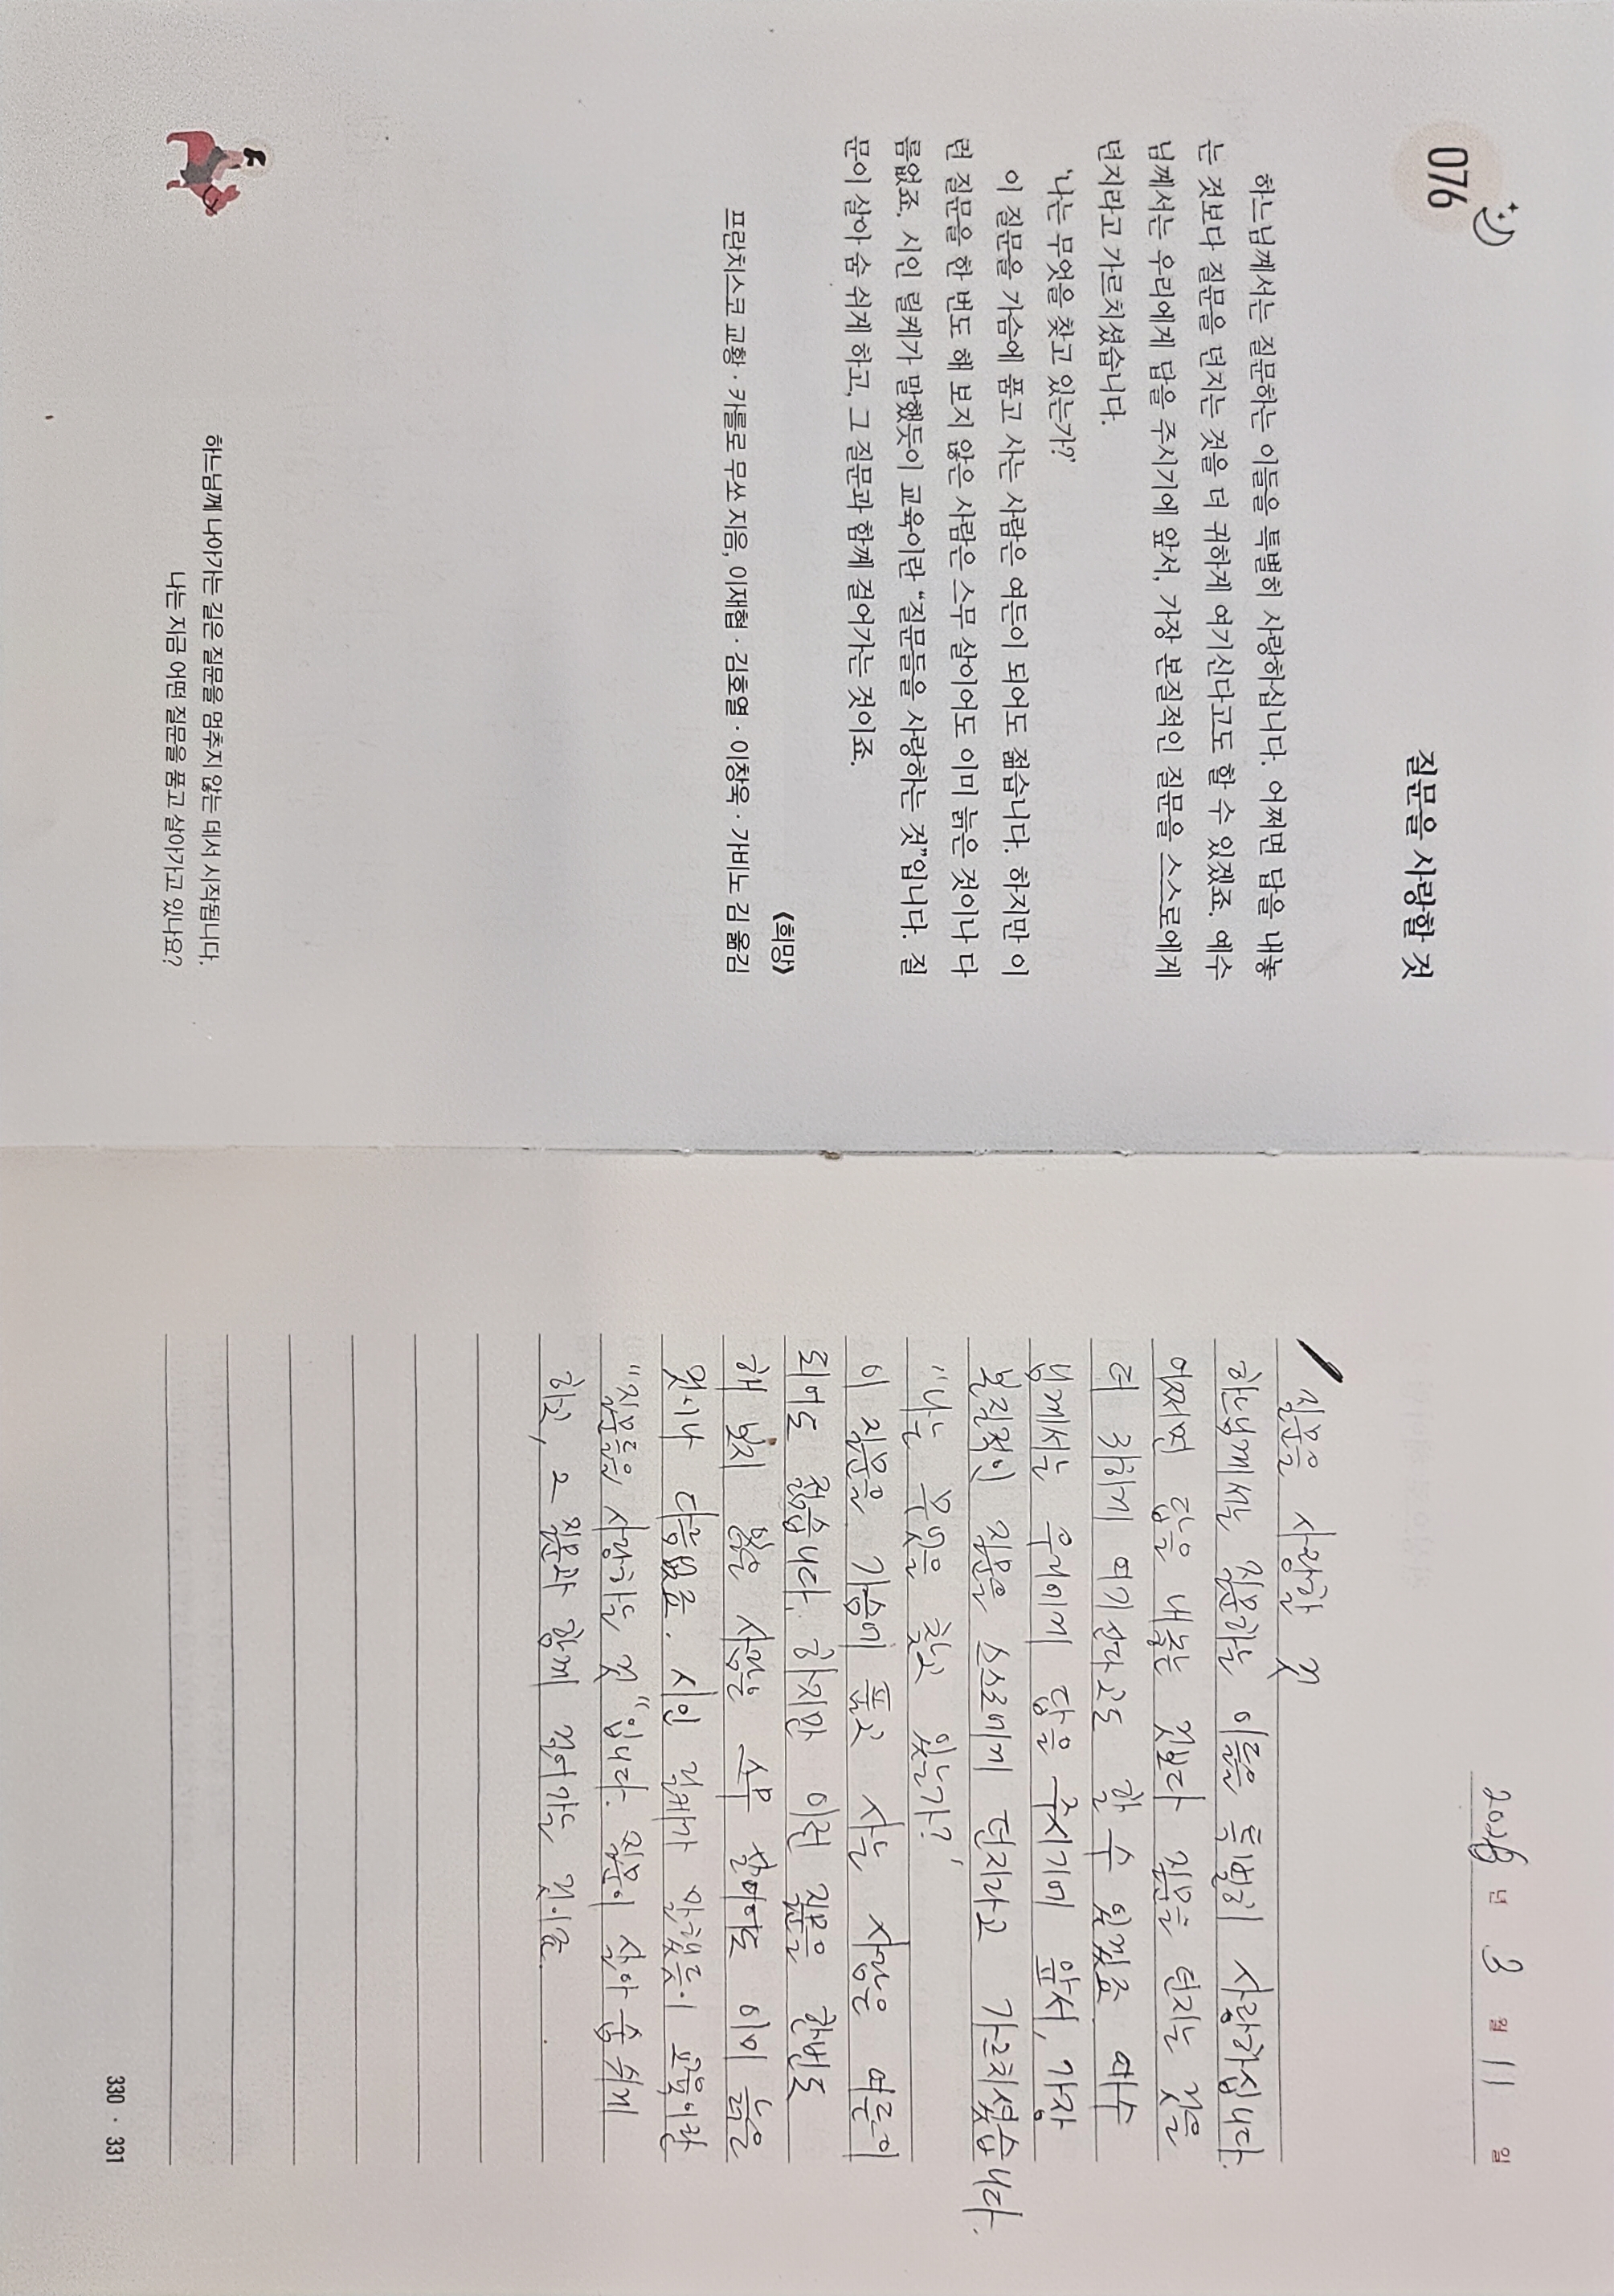 076
질문을 사랑할 것
하느님께서는 질문하는 이들을 특별히 사랑하십니다. 어쩌면 답을 내놓
는 것보다 질문을 던지는 것을 더 귀하게 여기신다고도 할 수 있겠죠. 예수
님께서는 우리에게 답을 주시기에 앞서, 가장 본질적인 질문을 스스로에게
던지라고 가르치셨습니다.
‘나는 무엇을 찾고 있는가?’
이 질문을 가슴에 품고 사는 사람은 여든이 되어도 젊습니다. 하지만 이
런 질문을 한 번도 해 보지 않은 사람은 스무 살이어도 이미 늙은 것이나 다
름없죠. 시인 릴케가 말했듯이 교육이란 “질문들을 사랑하는 것”입니다. 질
문이 살아 숨 쉬게 하고, 그 질문과 함께 걸어가는 것이죠.
《희망》
프란치스코 교황 · 카를로 무쏘 지음, 이재협 · 김호열 · 이창욱 · 가비노 김 옮김
하느님께 나아가는 길은 질문을 멈추지 않는 데서 시작됩니다.
나는 지금 어떤 질문을 품고 살아가고 있나요?
2026년 3월 11일
질문을 사랑할 것
하느님께서는 질문하는 이들을 특별히 사랑하십니다.
어쩌면 답을 내놓는 것보다 질문을 던지는 것을
더 귀하게 여기신다고도 할 수 있겠죠. 예수
님께서는 우리에게 답을 주시기에 앞서, 가장
본질적인 질문을 스스로에게 던지라고 가르치셨습니다.
'나는 무엇을 찾고 있는가?'
이 질문을 가슴에 품고 사는 사람은 여든이
되어도 젊습니다. 하지만 이런 질문을 한번도
해 보지 않은 사람은 스무 살이어도 이미 늙은
것이나 다름없죠. 시인 릴케가 말했듯이 교육이란
"질문들을 사랑하는 것"입니다. 질문이 살아 숨 쉬게
하고, 그 질문과 함께 걸어가는 것이죠.
330 · 331